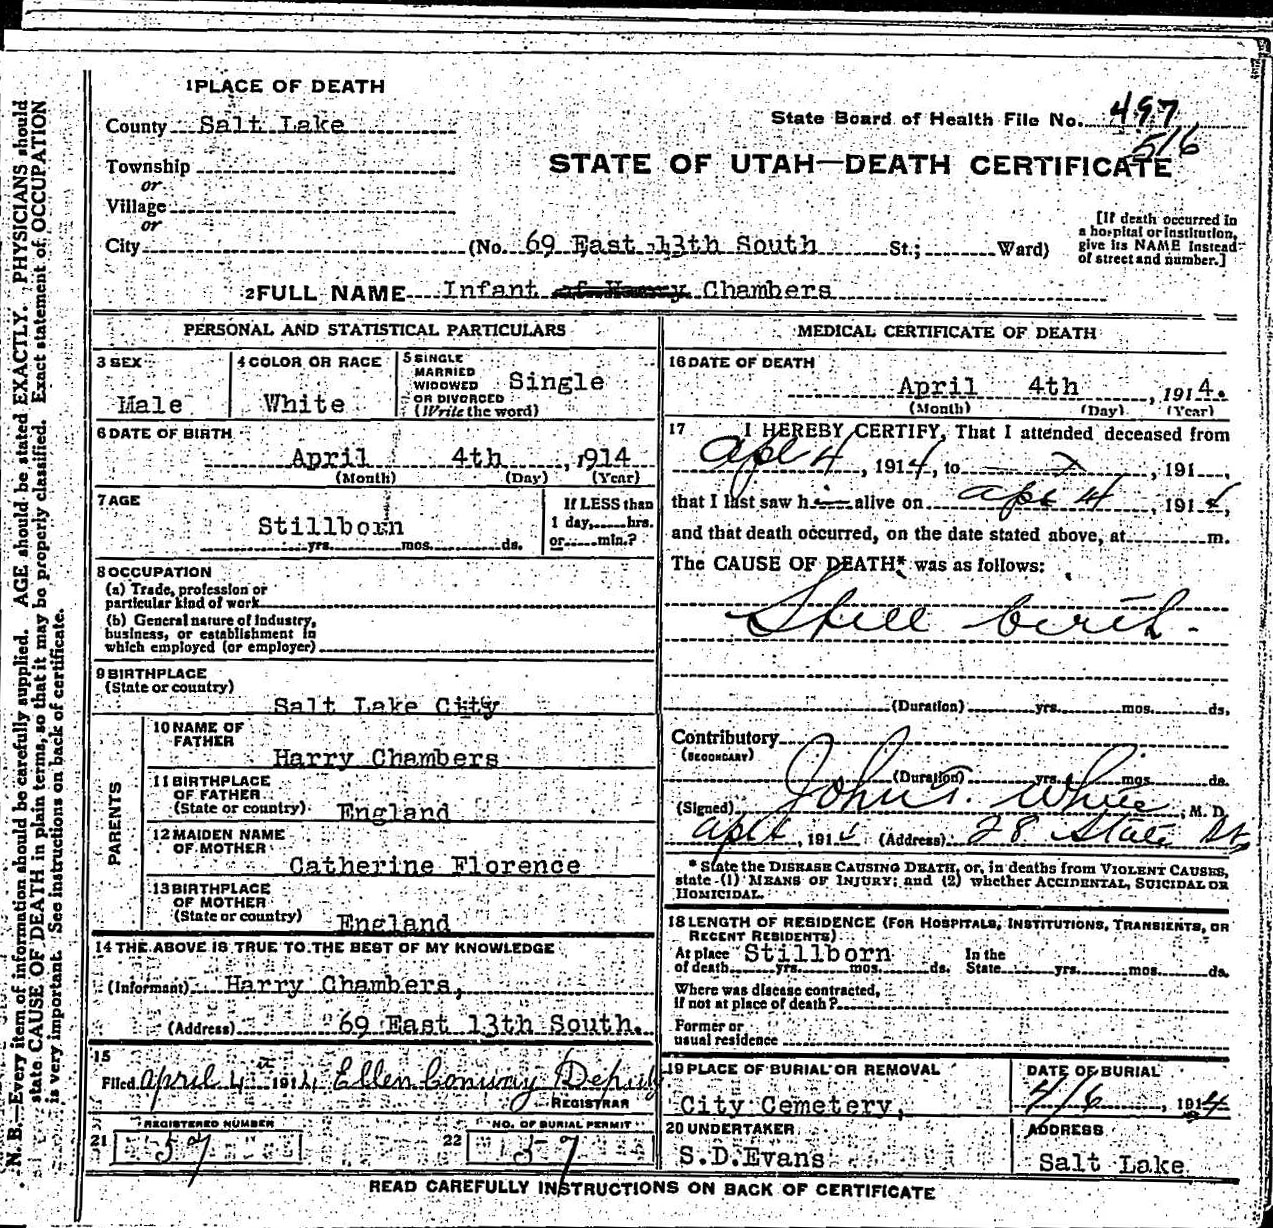 1 PLACE OF DEATH
County Salt Lake
State Board of Health File No. 497
516
Township
or
Village
or
City
STATE OF UTAH—DEATH CERTIFICATE
(No. 69 East 13th South St.; Ward)
[If death occurred in
a hospital or institution,
give its NAME instead
of street and number.]
2 FULL NAME Infant of Harry Chambers
PERSONAL AND STATISTICAL PARTICULARS
3 SEX
Male
4 COLOR OR RACE
White
5 SINGLE
MARRIED
WIDOWED
OR DIVORCED
(Write the word)
Single
6 DATE OF BIRTH
April 4th, 1914
(Month) (Day) (Year)
7 AGE
Stillborn
yrs. mos. ds.
If LESS than
1 day, hrs.
or min.?
8 OCCUPATION
(a) Trade, profession or
particular kind of work
(b) General nature of industry,
business, or establishment in
which employed (or employer)
9 BIRTHPLACE
(State or country)
Salt Lake City
PARENTS
10 NAME OF
FATHER
Harry Chambers
11 BIRTHPLACE
OF FATHER
(State or country)
England
12 MAIDEN NAME
OF MOTHER
Catherine Florence
13 BIRTHPLACE
OF MOTHER
(State or country)
England
14 THE ABOVE IS TRUE TO THE BEST OF MY KNOWLEDGE
(Informant) Harry Chambers,
(Address) 69 East 13th South.
15
Filed April 4th 1914, Ellen Conway Deputy
REGISTRAR
REGISTERED NUMBER
21 57
NO. OF BURIAL PERMIT
22 57
MEDICAL CERTIFICATE OF DEATH
16 DATE OF DEATH
April 4th, 1914.
(Month) (Day) (Year)
17 I HEREBY CERTIFY, That I attended deceased from
Apl 4, 1914, to , 191 ,
that I last saw h alive on Apl 4, 1914,
and that death occurred, on the date stated above, at m.
The CAUSE OF DEATH* was as follows:
Still birth.
(Duration) yrs. mos. ds.
Contributory
(SECONDARY)
(Duration) yrs. mos. ds.
(Signed) John T. White, M. D.
Apl 4, 191 (Address) 28 State St
* State the DISEASE CAUSING DEATH, or, in deaths from VIOLENT CAUSES,
state (1) MEANS OF INJURY; and (2) whether ACCIDENTAL, SUICIDAL OR
HOMICIDAL.
18 LENGTH OF RESIDENCE (FOR HOSPITALS, INSTITUTIONS, TRANSIENTS, OR
RECENT RESIDENTS)
At place Stillborn In the
of death yrs. mos. ds. State yrs. mos. ds.
Where was disease contracted,
if not at place of death?
Former or
usual residence
19 PLACE OF BURIAL OR REMOVAL
City Cemetery,
DATE OF BURIAL
4/6, 1914
20 UNDERTAKER
S.D.Evans
ADDRESS
Salt Lake
READ CAREFULLY INSTRUCTIONS ON BACK OF CERTIFICATE
N. B.—Every item of information should be carefully supplied. AGE should be stated EXACTLY. PHYSICIANS should
state CAUSE OF DEATH in plain terms, so that it may be properly classified. Exact statement of OCCUPATION
is very important. See instructions on back of certificate.